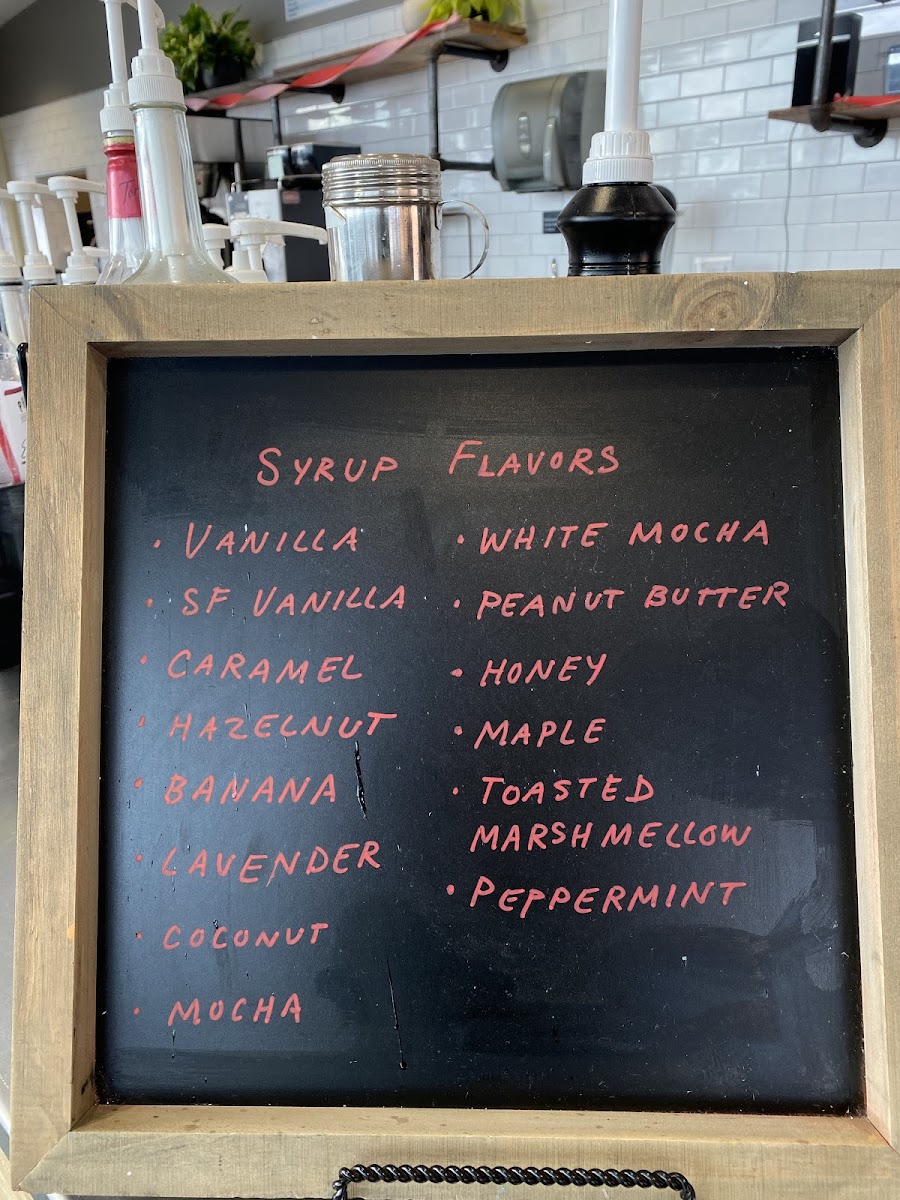 SYRUP FLAVORS
· VANILLA
· SF VANILLA
· CARAMEL
· HAZELNUT
· BANANA
· LAVENDER
· COCONUT
· MOCHA
· WHITE MOCHA
· PEANUT BUTTER
· HONEY
· MAPLE
· TOASTED
MARSHMELLOW
· PEPPERMINT